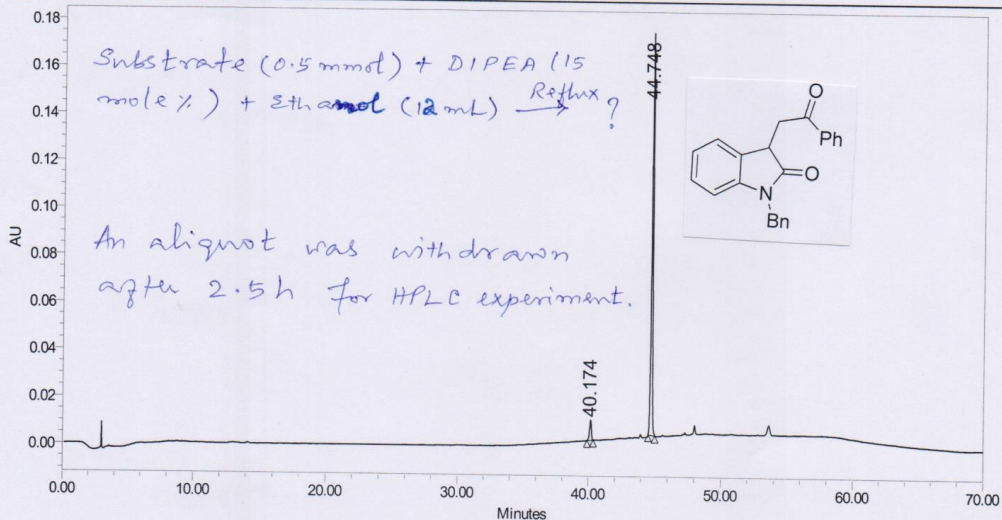 0.18
0.16
0.14
0.12
0.10
0.08
0.06
0.04
0.02
0.00
AU
Substrate (0.5 mmol) + DIPEA (15
mole %) + Ethanol (12 mL) Reflux ?
An aliquot was withdrawn
after 2.5h for HPLC experiment.
40.174
44.748
O
Ph
O
N
Bn
0.00 10.00 20.00 30.00 40.00 50.00 60.00 70.00
Minutes